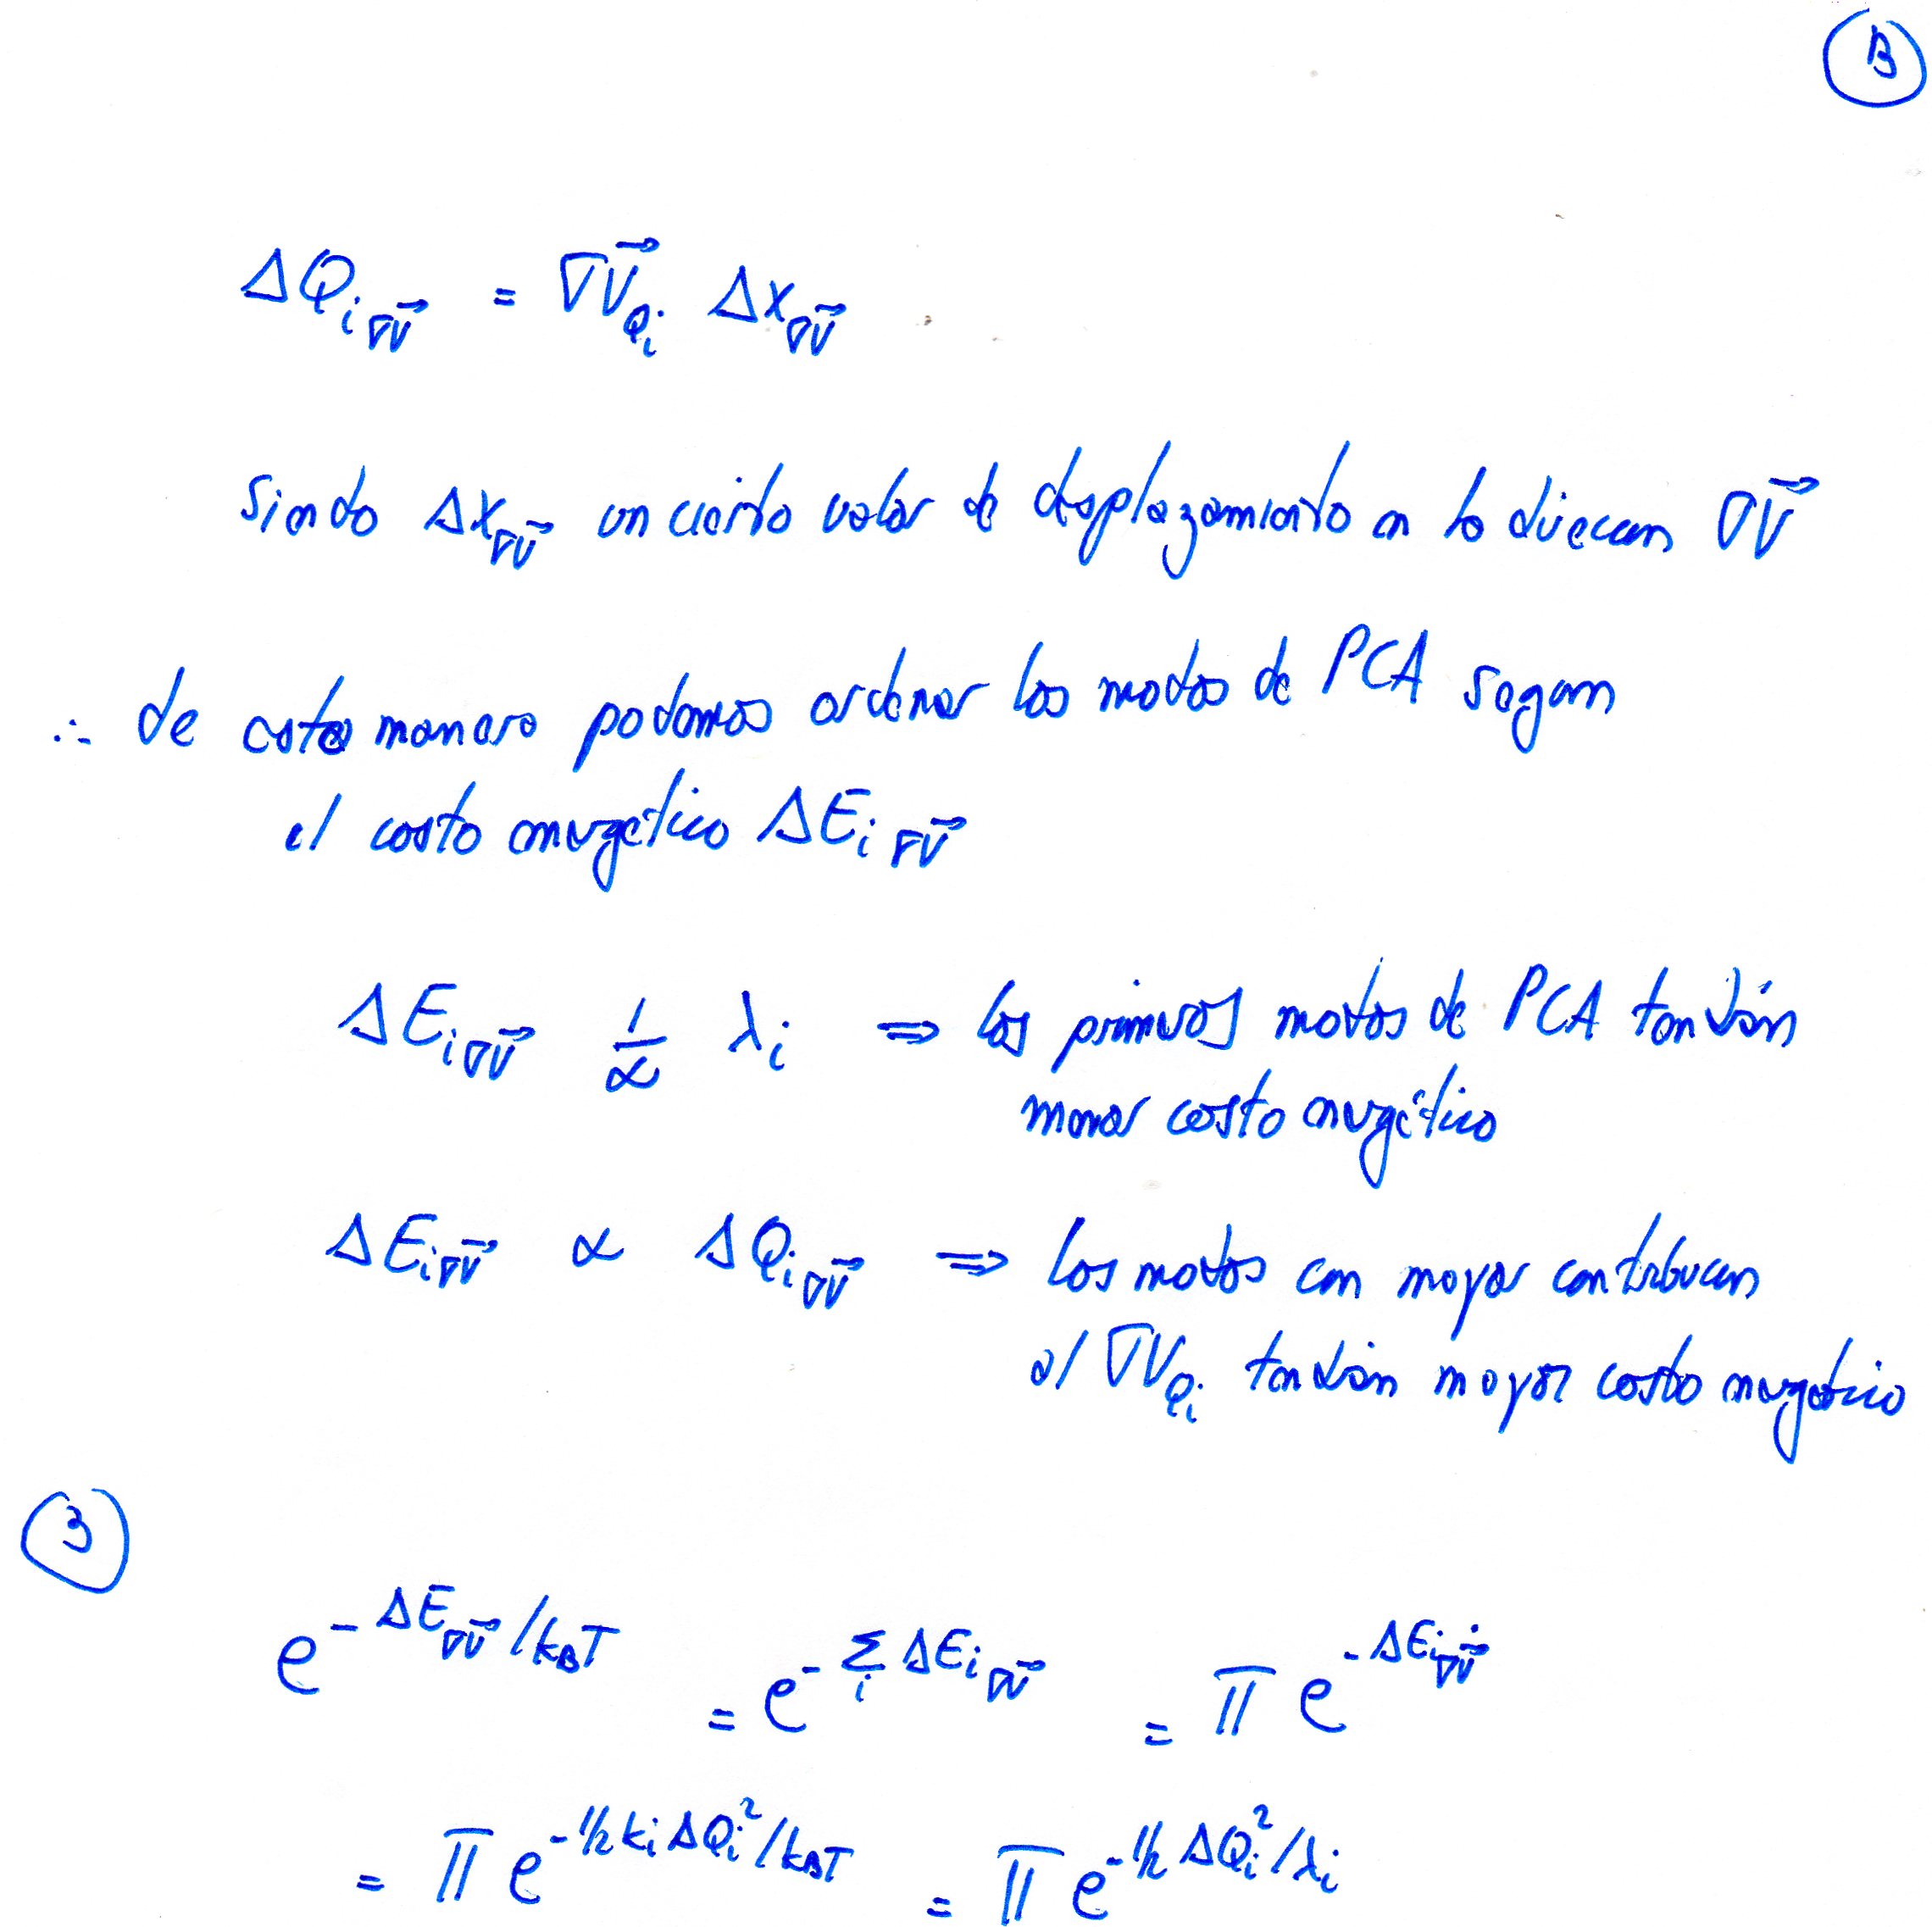 B
ΔQ_{i ∇V⃗} = ∇V⃗_{Q_i} ΔX_{∇V⃗}
Siendo ΔX_{∇V⃗} un cierto valor de desplazamiento en la direccion ∇V⃗
∴ de esta manera podemos ordenar los modos de PCA segun
el costo energético ΔE_{i ∇V⃗}
ΔE_{i ∇V⃗} 1/∝ λ_i ⇒ los primeros modos de PCA tendrán
menor costo energético
ΔE_{i ∇V⃗} ∝ ΔQ_{i ∇V⃗} ⇒ los modos con mayor contribucion
al ∇V_{Q_i} tendrán mayor costo energetico
3
e^{-ΔE_{∇V⃗}/k_BT} = e^{-Σ_i ΔE_{i ∇V⃗}} = Π e^{-ΔE_{i ∇V⃗}}
= Π e^{-1/2 k_i ΔQ_i^2/k_BT} = Π e^{-1/2 ΔQ_i^2/λ_i}